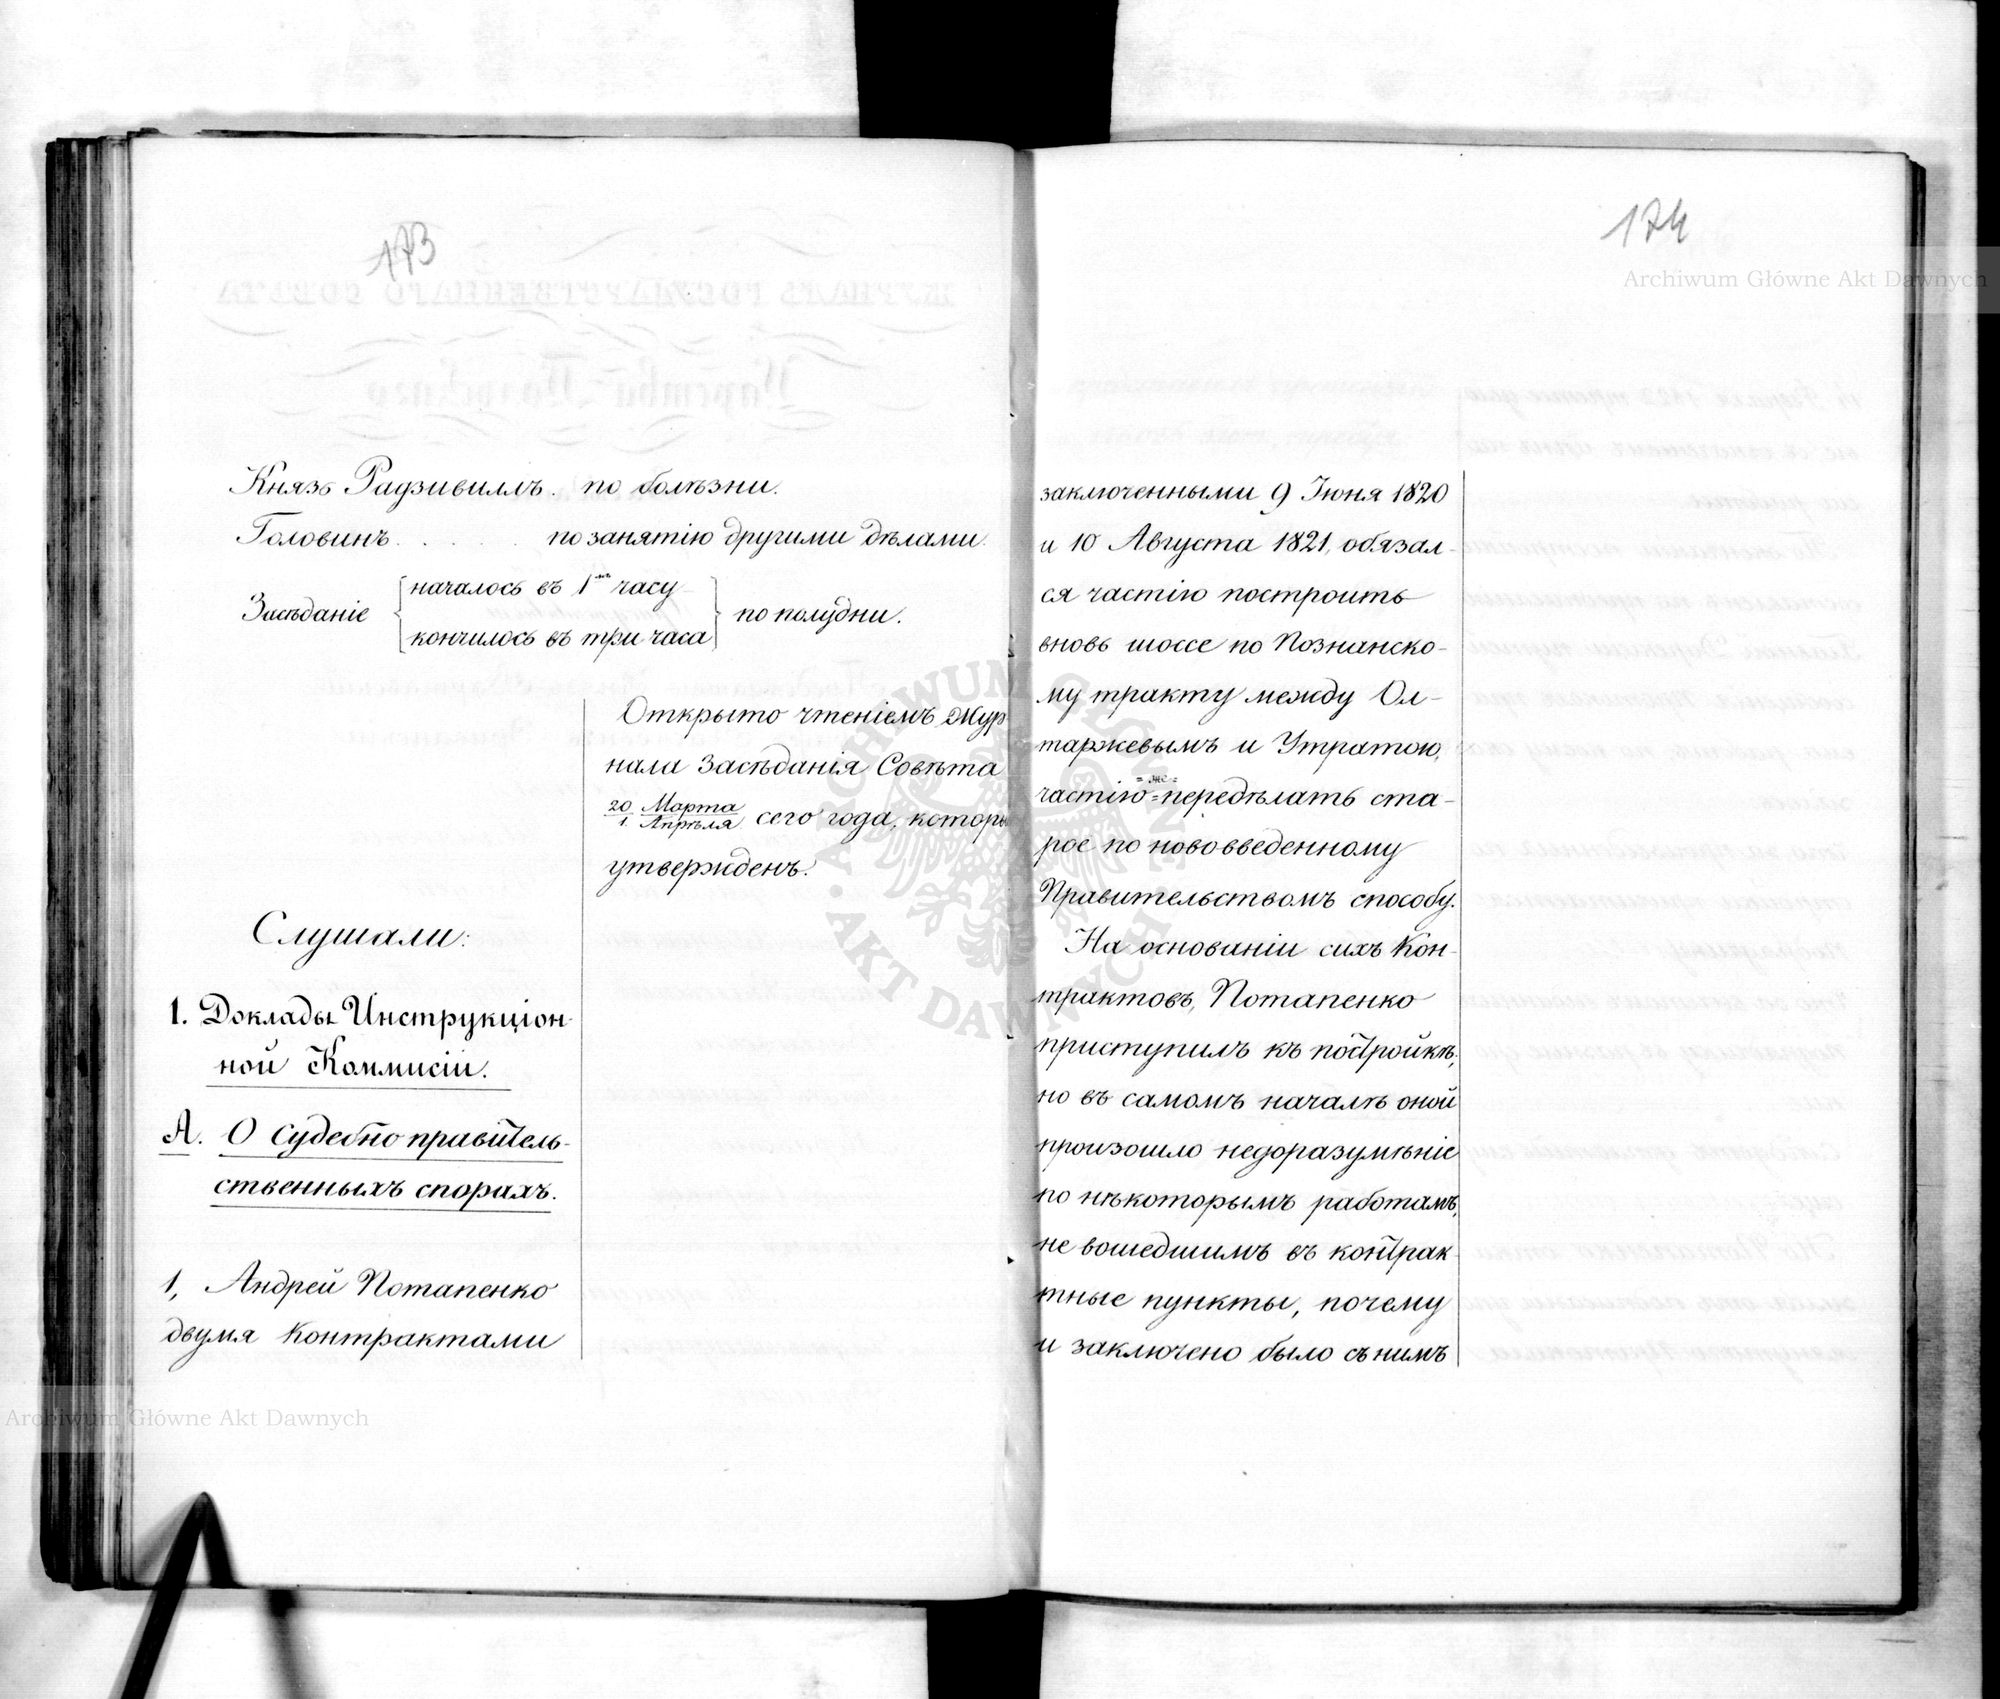 173
Князь Радзивиллъ. по болѣзни.
Головинъ . . . . по занятію другими дѣлами.
Засѣданіе { началось въ 1мъ часу } по полудни.
кончилось въ три часа
Открыто чтеніемъ Жур
нала Засѣданія Совѣта
20/1 Марта/Апрѣля сего года, которы
утвержденъ.
Слушали:
1. Доклады Инструкціон-
ной Коммисіи.
А. О Судебно правитель-
ственныхъ спорахъ.
1, Андрей Потапенко
двумя контрактами
174
заключенными 9 Іюня 1820
и 10 Августа 1821, обязал-
ся частію построить
вновь шоссе по Познанско-
му тракту между Ол-
таржевымъ и Утратою,
частію =же= передѣлать ста-
рое по нововведенному
Правительствомъ способу.
На основаніи сихъ Кон-
трактовъ, Потапенко
приступилъ къ постройкѣ,
но въ самомъ началѣ оной
произошло недоразумѣніе
по нѣкоторымъ работамъ,
не вошедшимъ въ контрак-
тные пункты, почему
и заключено было съ нимъ
Archiwum Główne Akt Dawnych
Archiwum Główne Akt Dawnych
ARCHIWUM GŁÓWNE AKT DAWNYCH